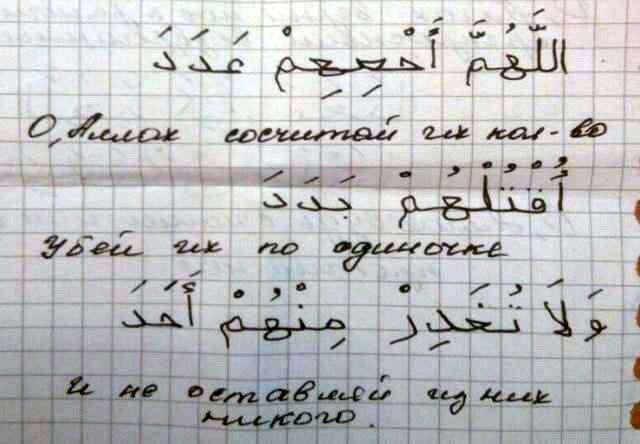 اللَّهُمَّ أَحْعِهِمْ عَدَدَ
О, Аллах сосчитай их кол-во
أُقْتُلْهُمْ بَدَدَ
Убей их по одиночке
وَلَا تُغَدِرْ مِنْهُمْ أَحَدَ
и не оставляй из них
никого.